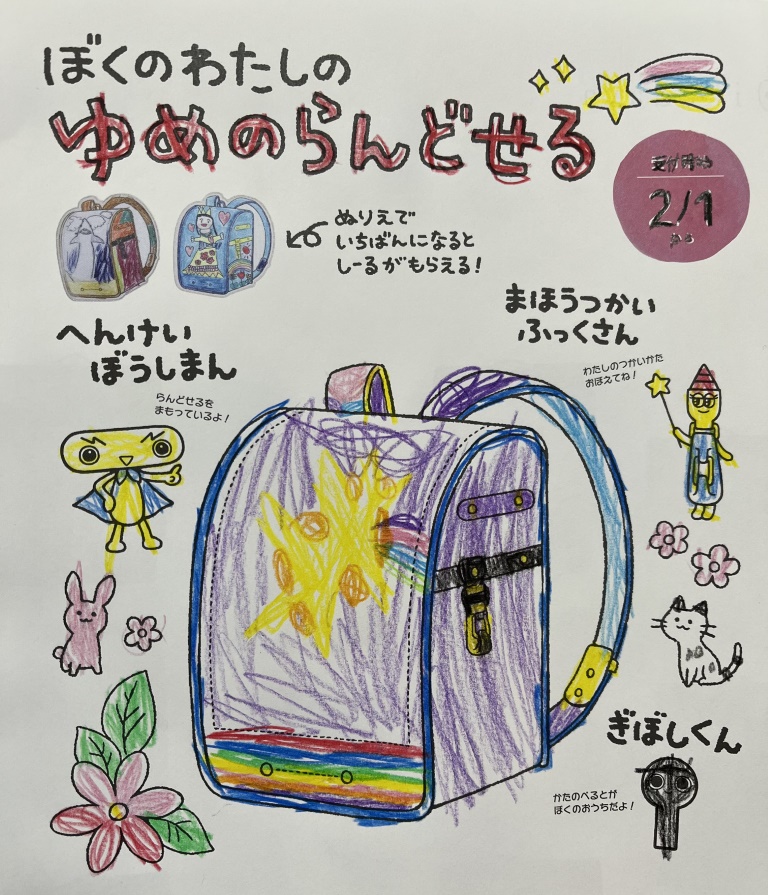 ぼくのわたしの
ゆめのらんどせる
2/1
ぬりえで
いちばんになると
しーるがもらえる!
まほうつかい
ふっくさん
わたしのつかいかた
おぼえてね!
へんけい
ぼうしまん
らんどせるを
まもっているよ!
ぎぼしくん
かたのべるとが
ぼくのおうちだよ!